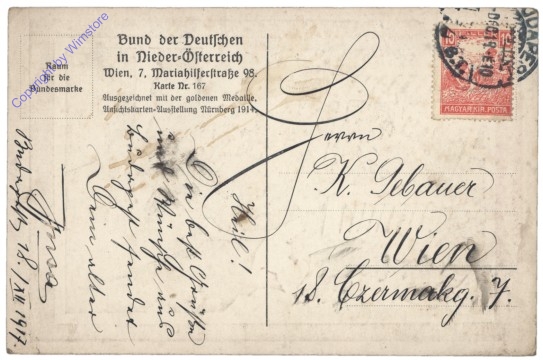 Bund der Deutschen
in Nieder-Österreich
Wien, 7, Mariahilferstraße 98.
Karte Nr. 167
Ausgezeichnet mit der goldenen Medaille.
Ansichtskarten-Ausstellung Nürnberg 1914.
Raum
für die
Bundesmarke
Copyright by Wimstore
15
MAGYAR KIR. POSTA
Herrn
K. Gebauer
Wien
18. Czermakg. 7.
Heil!
Die best Grüße
und Wünsche aus
Budapest sendet
Dein alter
Budapest 18/XII 1917.